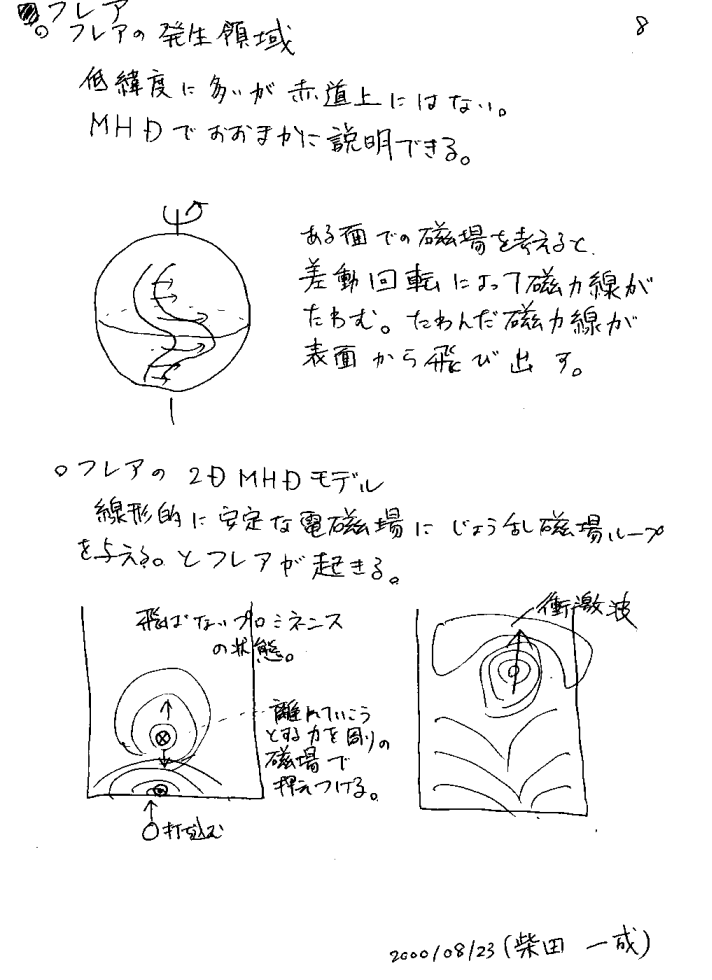 フレア
8
○ フレアの発生領域
低緯度に多いが赤道上にはない。
MHDでおおまかに説明できる。
ある面での磁場を考えると、
差動回転によって磁力線が
たわむ。たわんだ磁力線が
表面から飛び出す。
○ フレアの 2D MHDモデル
線形的に安定な電磁場にじょう乱磁場ループ
を与える。とフレアが起きる。
飛ばないプロミネンス
の状態。
離れていこう
とする力を周りの
磁場で
押えつける。
打ち込む
衝激波
2000/08/23 (柴田 一成)